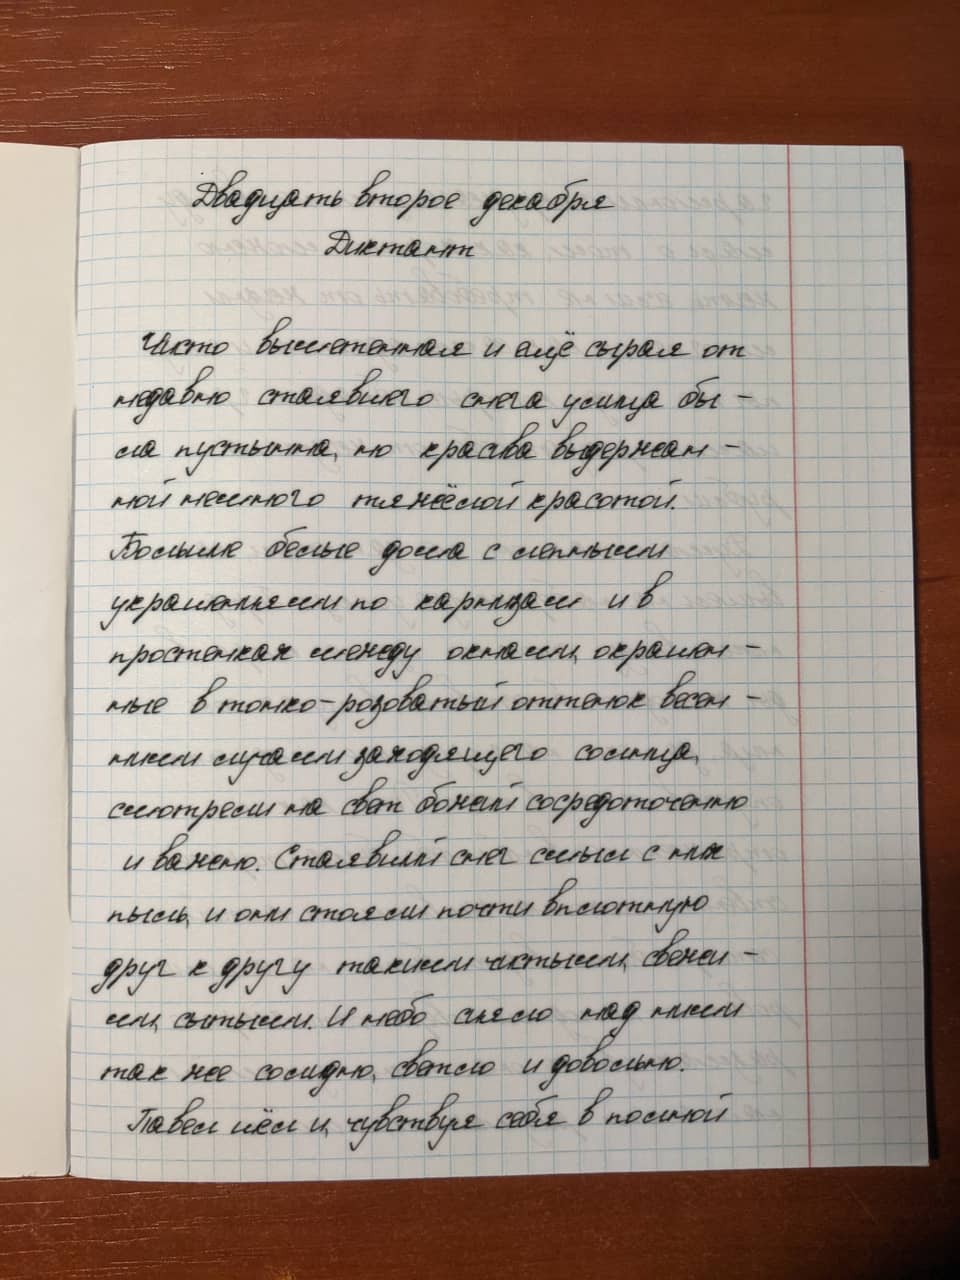 Двадцать второе декабря
Диктант
Чисто выметенная и ещё сырая от
недавно стаявшего снега улица бы-
ла пустынна, но красива выдержан-
ной немного тяжёлой красотой.
Большие белые дома с лепными
украшеньями по карнизам и в
простенках между окнами, окрашен-
ные в тонко-розоватый оттенок весен-
ними лучами заходящего солнца,
смотрели на свет божий сосредоточенно
и важно. Стаявший снег смыл с них
пыль, и они стояли почти вплотную
друг к другу такими чистыми, свежи-
ми, сытыми. И небо сияло над ними
так же солидно, светло и довольно.
Павел шёл и, чувствуя себя в полной